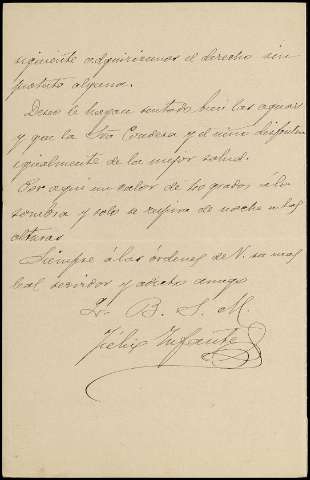 siguiente adquiriramos el derecho sin
protesta alguna.
Deseo le hayan sentado bien las aguas
y que la Sra Condesa y el niño disfruten
igualmente de la mejor salud.
Por aqui un calor de 40 grados á la
sombra y solo se respira de noche en las
alturas
Siempre á las órdenes de V. su mas
leal servidor y adicto amigo
Q. B. S. M.
Félix Infante